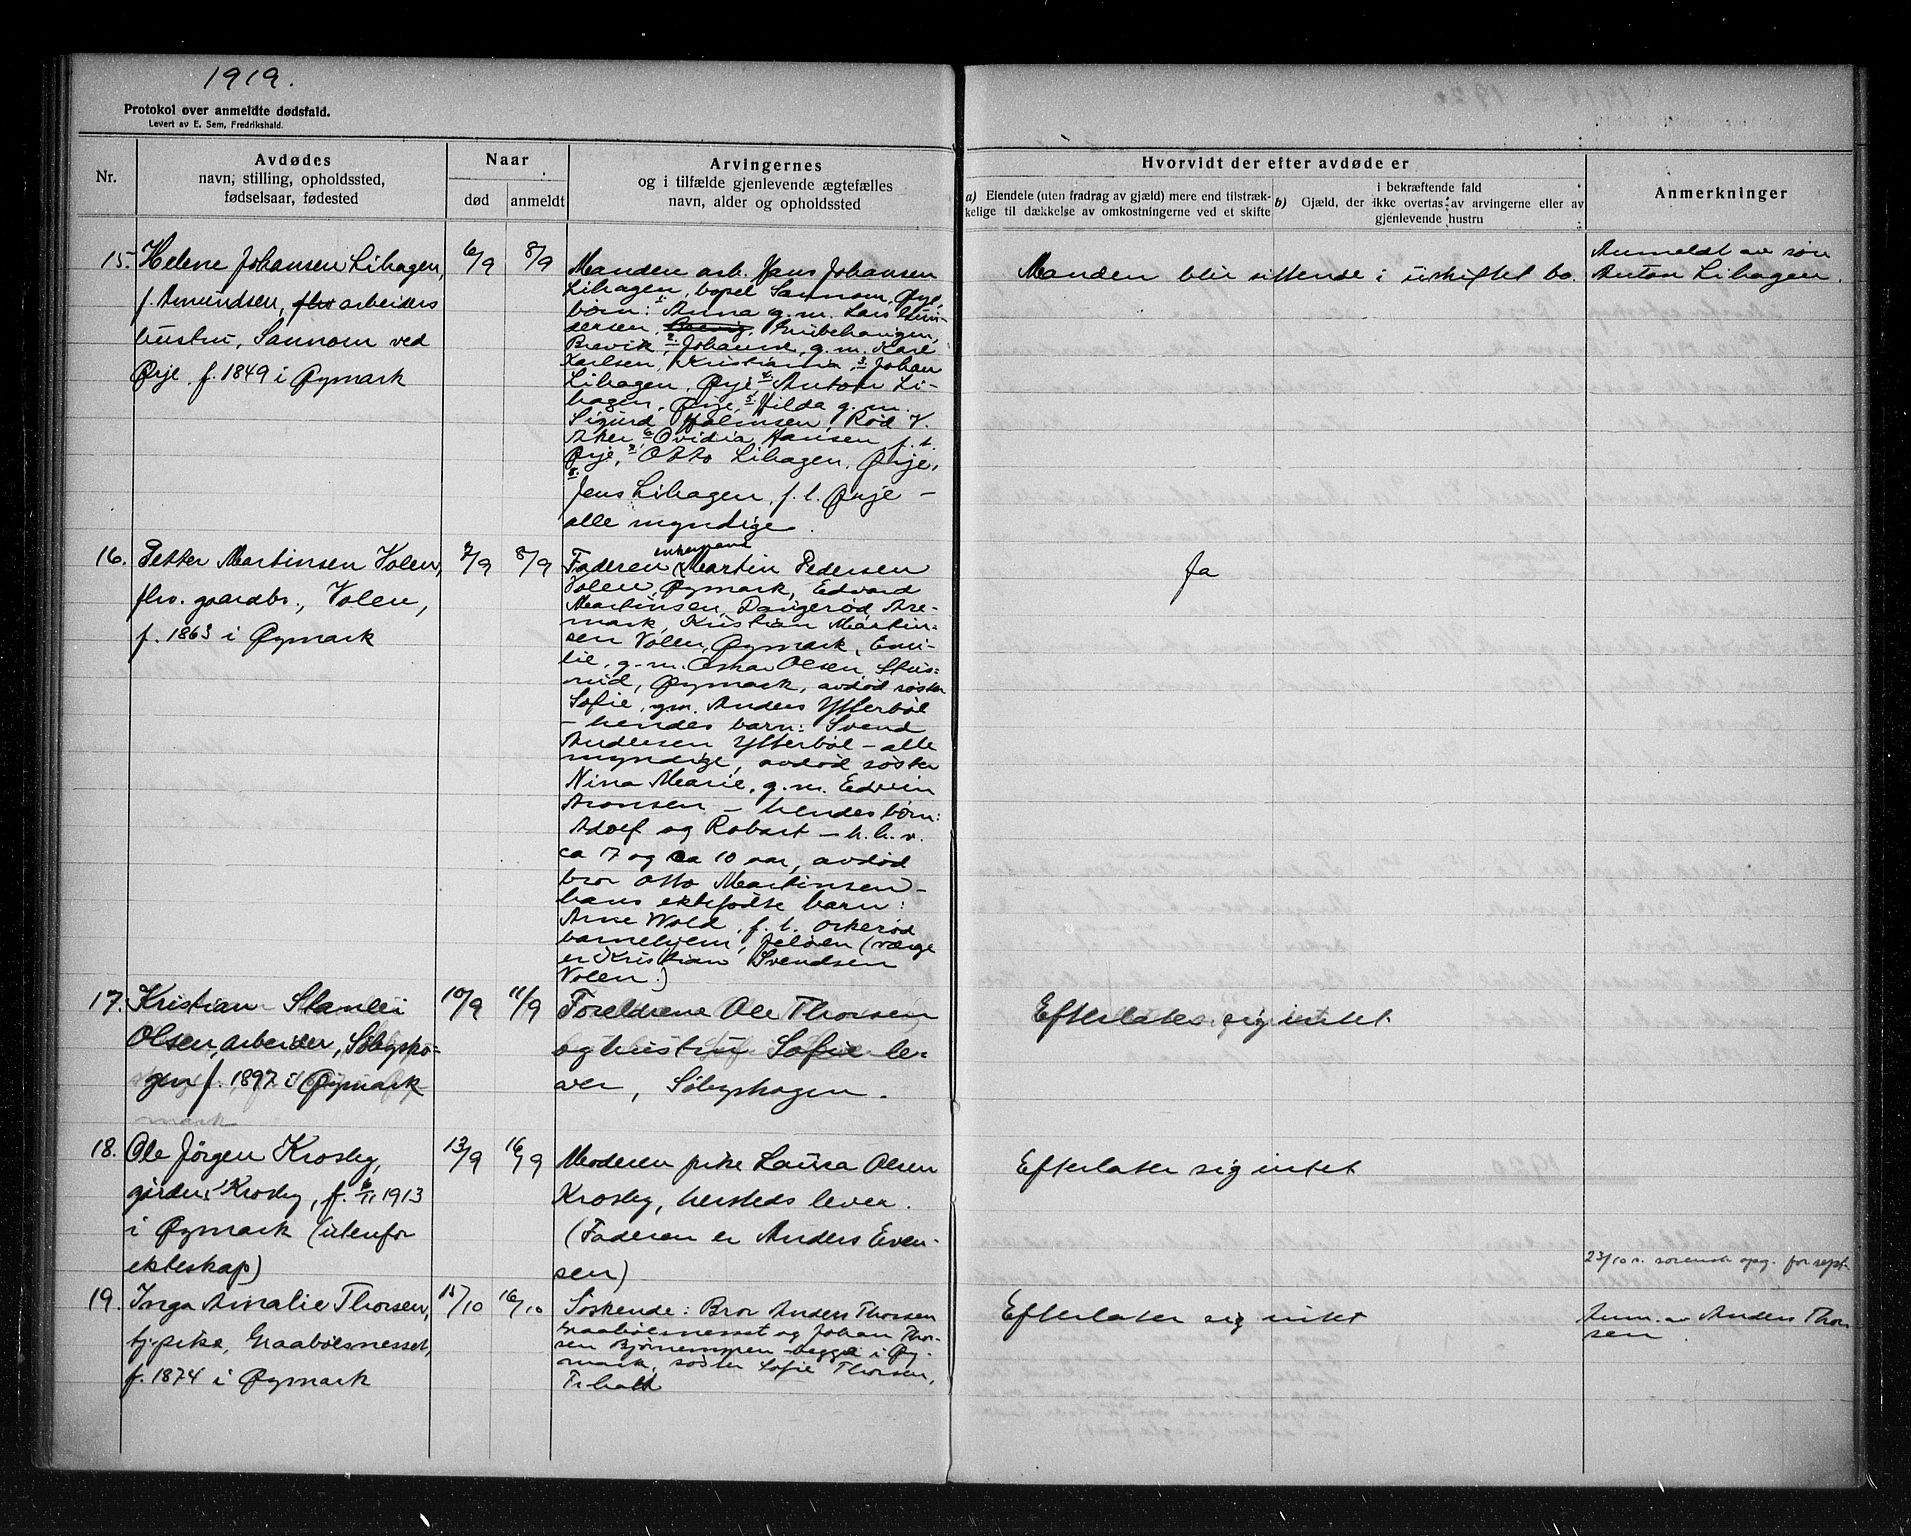 1919.
Protokol over anmeldte dødsfald.
Levert av E. Sem, Fredrikshald.
Nr.
Avdødes
navn, stilling, opholdssted,
fødselsaar, fødested
Naar
død
anmeldt
Arvingernes
og i tilfælde gjenlevende ægtefælles
navn, alder og opholdssted
Hvorvidt der efter avdøde er
a) Eiendele (uten fradrag av gjæld) mere end tilstræk-
kelige til dækkelse av omkostningerne ved et skifte
i bekræftende fald
b) Gjæld, der ikke overtas av arvingerne eller av
gjenlevende hustru
Anmerkninger
15. Helene Johansen Lihagen,
f. Amundsen, flv arbeiders
hustru, Sannom ved
Ørje f. 1849 i Øymark
6/9
8/9
Manden arb. Hans Johansen
Lihagen, bopel Sannom, Ørje,
børn: 1. Anna g.m. Lars Gun-
dersen, Grubehaugen,
Brevik, 2. Johanne, g.m. Karl
Karlsen, Kristiania, 3. Johan
Lihagen, Ørje, 4. Anton Li-
hagen, Ørje, 5. Hilda g.m.
Sigurd Holmsen, Rød V.
Aker, 6. Ovidia Hansen, f.t.
Ørje, 7. Otto Lihagen, Ørje,
8.
Jens Lihagen, f.t. Ørje –
alle myndige.
Manden blir sittende i uskiftet bo.
Anmeldt av søn
Anton Lihagen.
16. Petter Martinsen Volen,
flv. gaardbr., Volen,
f. 1863 i Øymark
7/9
8/9
enkemand
Faderen Martin Pedersen
Volen, Øymark, Edvard
Martinsen, Dangerød, Are-
mark, Kristian Martin-
sen Volen, Øymark, Emi-
lie, g.m. Oskar Olsen, Stus-
rud, Øymark, avdød søster
Sofie, gm. Anders Ytterbøl
– hendes barn: Svend
Andersen Ytterbøl – alle
myndige, avdød søster
Nina Marie, g.m. Edvin
Aronsen – hendes børn:
Adolf og Robart – h.h.v.
ca 7 og ca 10 aar, avdød
bror Otto Martinsen –
hans ektefødte barn:
Arne Wold, f.t. Orkerød
barnehjem, Jeløen (værge
er Kristian Svendsen
Volen.)
Ja
17. Kristian Stanlei
Olsen, arbeider, Søbysko-
gen f. 1897 i Øymark
mark
10/9
11/9
Foreldrene Ole Thorsen
og hustru Sofie le-
ver, Søbyskogen.
Efterlater sig intet
18. Ole Jørgen Krosby,
Krosby, f. 6/11 1913
i Øymark (utenfor
ekteskap)
13/9
16/9
Moderen pike Laura Olsen
Krosby, hersteds lever.
(Faderen er Anders Even-
sen)
Efterlater sig intet
23/10 s. opg. for sept.
19. Inga Amalie Thorsen,
tj. pike, Graabølsnesset,
f. 1874 i Øymark
15/10
16/10
Søskende: Bror Anders Thorsen
Graabølsnesset og Johan Thor-
sen Bjørnemyren – begge i Øy-
mark, søster Sofie Thorsen,
Efterlater sig intet
Anm. av Anders Thor-
sen.